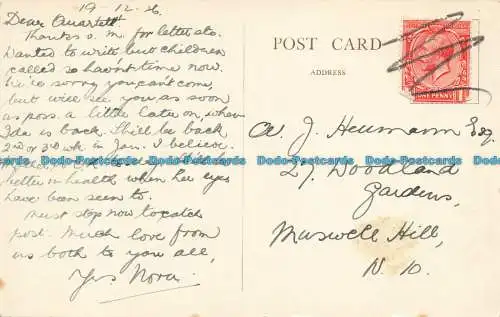 19-12-26
Dear Quartett
Thanks v. m. for letter etc.
Wanted to write but children
called so haven't time now.
We're sorry you can't come,
but will see you as soon
as poss. a little later on, when
Ida is back. I'll be back
2nd or 3rd wk in Jan. I believe.
better in health when her eyes
have been seen to.
Must stop now to catch
post. Much love from
us both to you all,
Yrs Nora.
POST CARD
ADDRESS
ONE PENNY
A. J. Heumann Esq.
27, Woodland
Gardens,
Muswell Hill,
N. 10.
Dodo-Postcards Dodo-Postcards Dodo-Postcards Dodo-Postcards